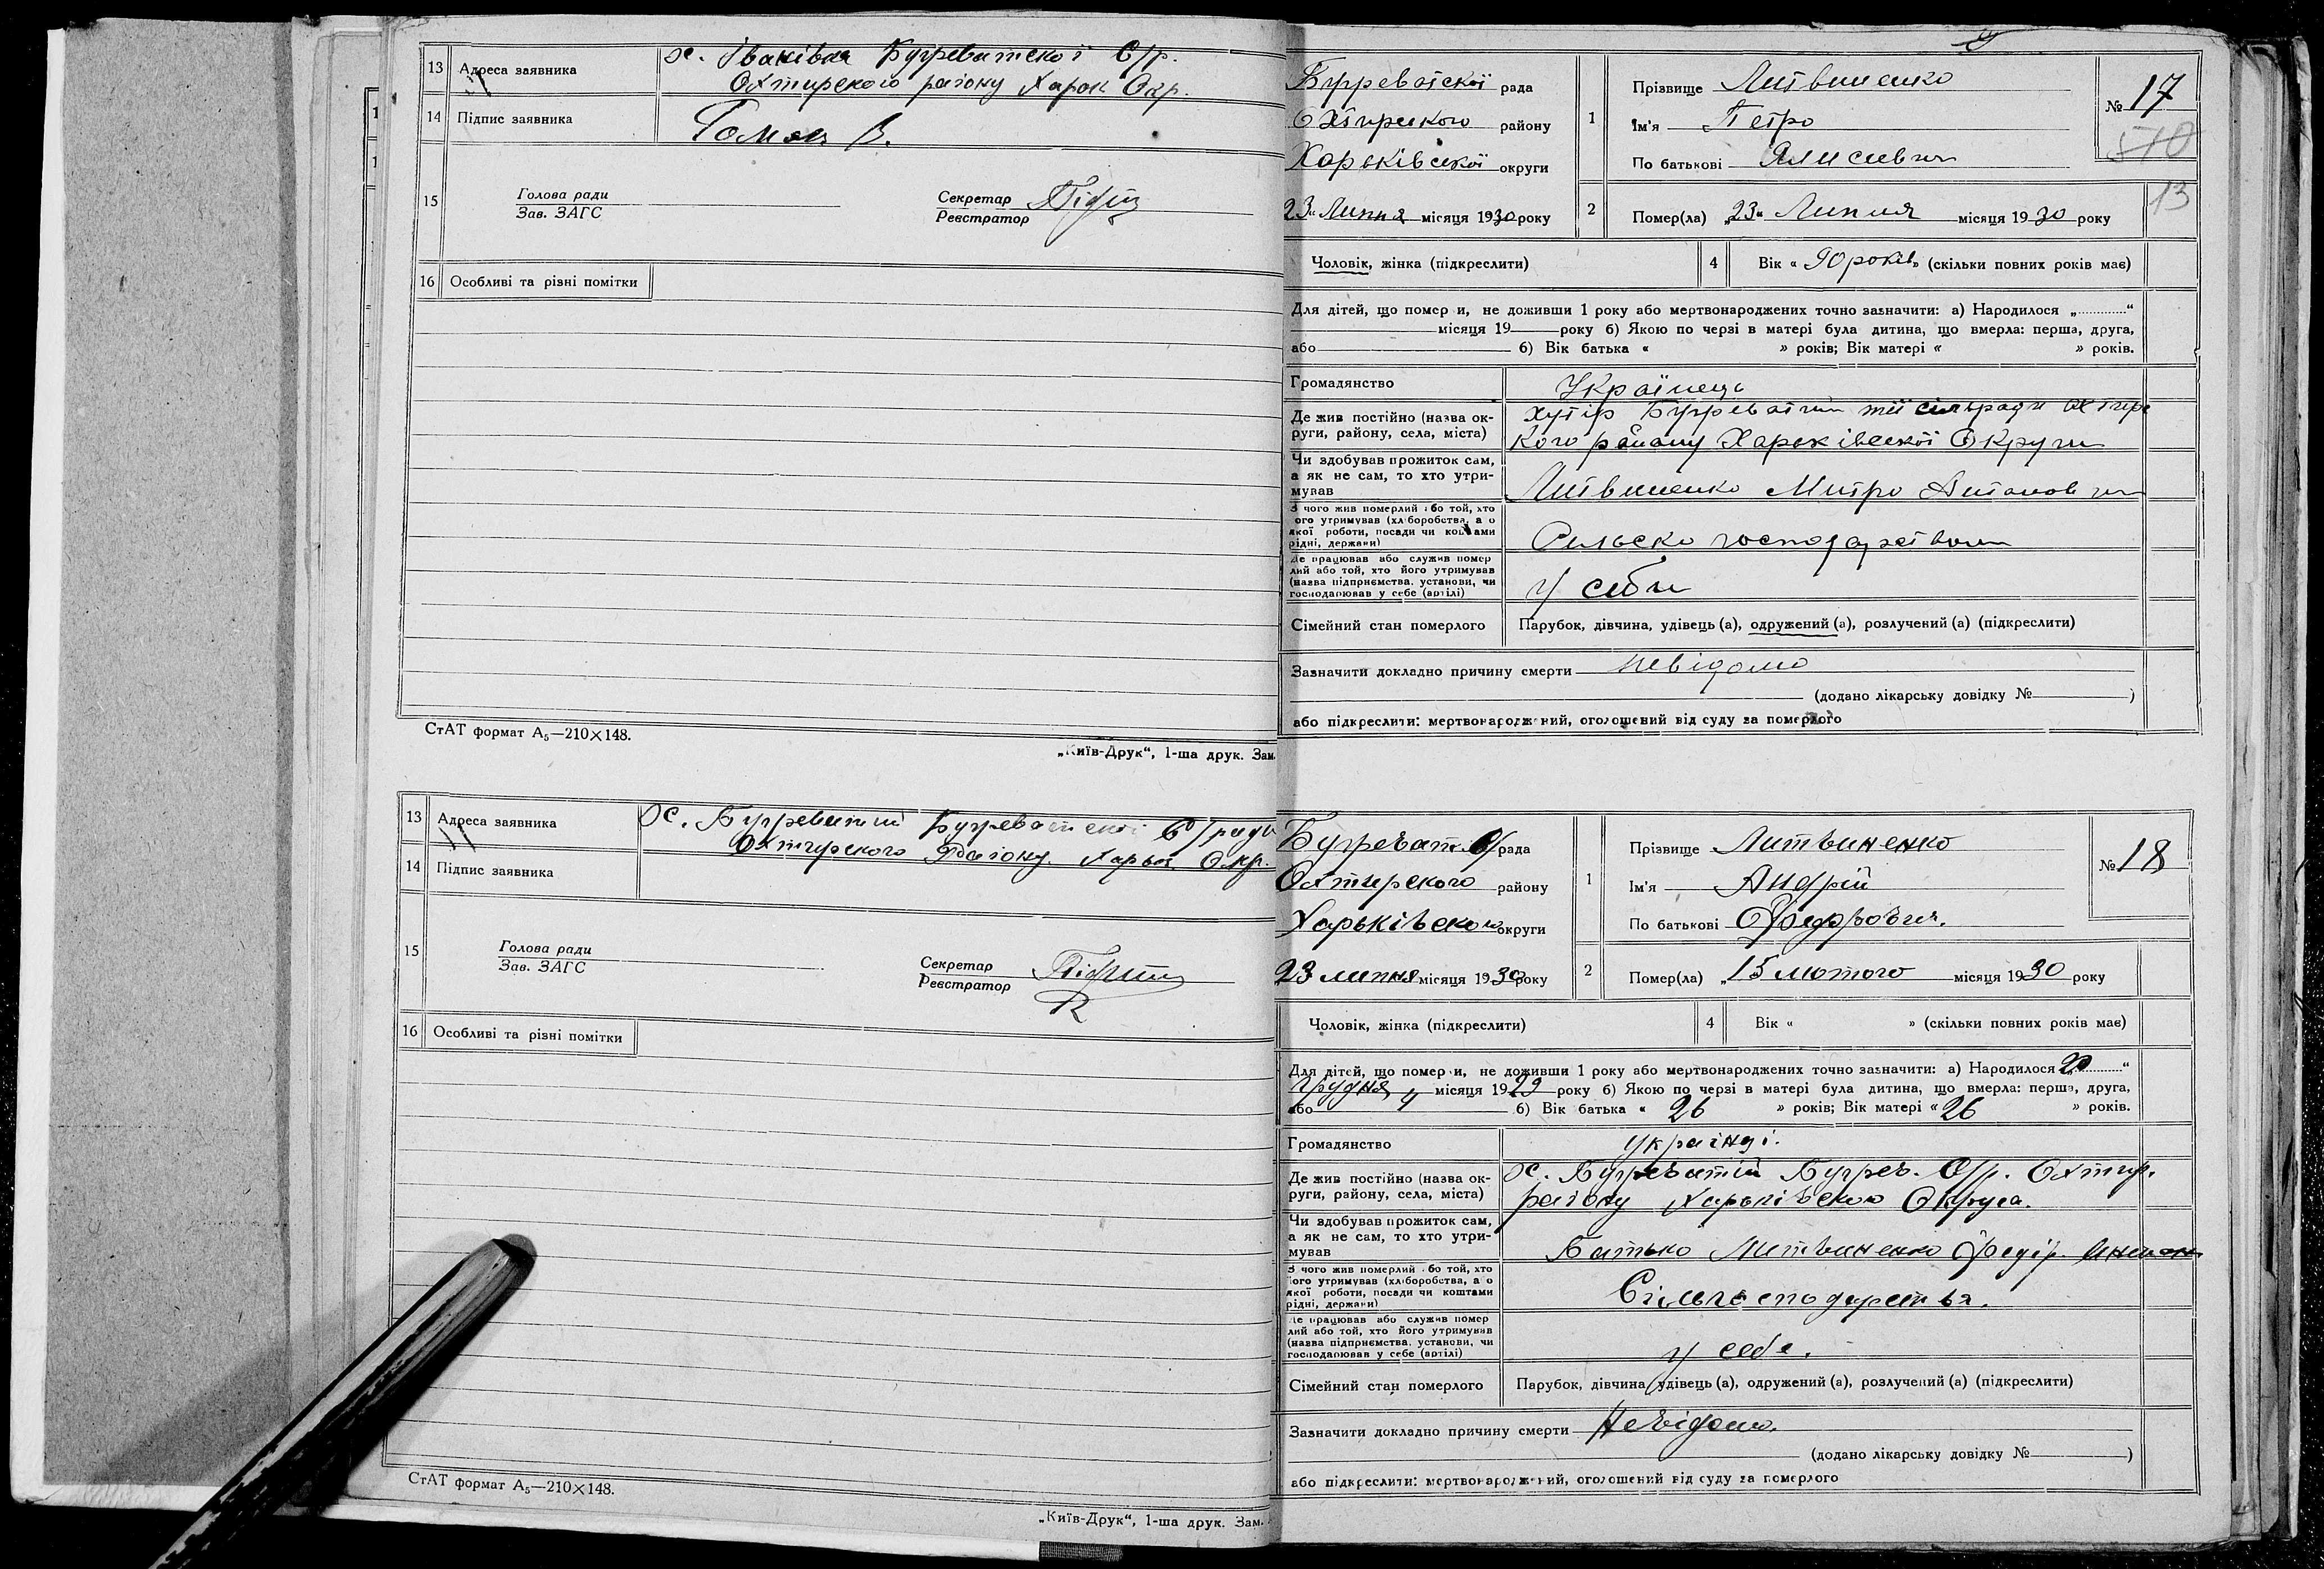 13 Адреса заявника х. Іванівка Бугреватської С/р.
Охтирского району Харок Окр.
14 Підпис заявника
15 Голова ради
Зав. ЗАГС
Секретар
Реєстратор
16 Особливі та різні помітки
СтАТ формат А5—210×148.
„Київ-Друк“, 1-ша друк. Зам.
13 Адреса заявника х. Бугреватий Бугреватської С/ради
Охтирского Району Харьк. Окр.
14 Підпис заявника
15 Голова ради
Зав. ЗАГС
Секретар
Реєстратор
16 Особливі та різні помітки
СтАТ формат А5—210×148.
„Київ-Друк“, 1-ша друк. Зам.
Бугреватської рада
Охтирського району
Харьківської округи
23 Липня місяця 1930 року
1 Прізвище Литвиненко
Ім'я Петро
По батькові
№ 17
570
13
2 Помер(ла) „23“ Липня місяця 1930 року
Чоловік, жінка (підкреслити)
4 Вік « 90 років » (скільки повних років має)
Для дітей, що померли, не доживши 1 року або мертвонароджених точно зазначити: а) Народилося „............“
місяця 19 року б) Якою по черзі в матері була дитина, що вмерла: перша, друга,
або б) Вік батька « » років; Вік матері « » років.
Громадянство Українець
Де жив постійно (назва округи, району, села, міста) хутір Бугреватий тії сільради Охтирс
кого району Харьківської Округи
Чи здобував прожиток сам,
а як не сам, то хто утримував Литвиненко Митро Антонович
З чого жив померлий або той, хто
його утримував (хліборобства, або
якої роботи, посади чи коштами
рідні, держави) Сильско господарством
Де працював або служив померлий або той, хто його утримував
(назва підприємства, установи, чи
господарював у себе (артілі) у себи
Сімейний стан померлого Парубок, дівчина, удівець (а), одружений (а), розлучений (а) (підкреслити)
Зазначити докладно причину смерти невідомо
(додано лікарську довідку № )
або підкреслити: мертвонароджений, оголошений від суду за померлого
Бугреват. С/рада
Охтирского району
Харьківського округи
23 липня місяця 1930 року
1 Прізвище Литвиненко
Ім'я Андрій
По батькові Федрович.
№ 18
2 Помер(ла) „15 лютого місяця 1930 року
Чоловік, жінка (підкреслити)
4 Вік « » (скільки повних років має)
Для дітей, що померли, не доживши 1 року або мертвонароджених точно зазначити: а) Народилося 20 “
грудня місяця 1929 року б) Якою по черзі в матері була дитина, що вмерла: перша, друга,
або 4 б) Вік батька « 26 » років; Вік матері « 26 » років.
Громадянство Українці.
Де жив постійно (назва округи, району, села, міста) х. Бугреватий Бугрев. С/р. Охтир.
району Харьківского Округа.
Чи здобував прожиток сам,
а як не сам, то хто утримував Батько Литвиненко Федір
З чого жив померлий або той, хто
його утримував (хліборобства, або
якої роботи, посади чи коштами
рідні, держави) Сільгосподарства.
Де працював або служив померлий або той, хто його утримував
(назва підприємства, установи, чи
господарював у себе (артілі) у себе.
Сімейний стан померлого Парубок, дівчина, удівець (а), одружений (а), розлучений (а) (підкреслити)
Зазначити докладно причину смерти Невідомо.
(додано лікарську довідку № )
або підкреслити: мертвонароджений, оголошений від суду за померлого